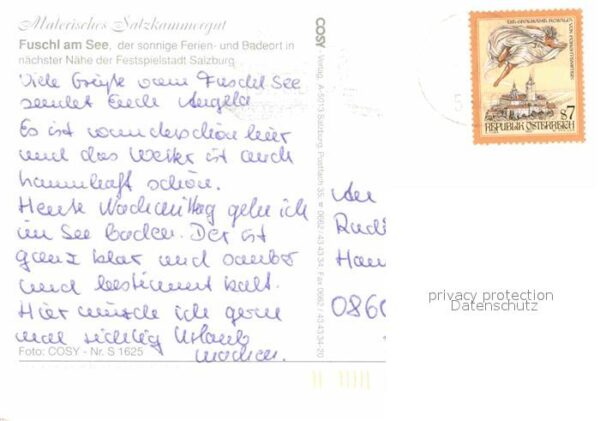 Malerisches Salzkammergut
Fuschl am See, der sonnige Ferien- und Badeort in
nächster Nähe der Festspielstadt Salzburg
Viele Grüße vom Fuschl See
sendet Euch Angela
Es ist wunderschön hier
und das Wetter ist auch
traumhaft schön.
Heute Nachmittag gehe ich
im See baden. Der ist
ganz klar und sauber
und bestimmt kalt.
Hier würde ich gern
mal richtig Urlaub
machen.
Foto: COSY - Nr. S 1625
COSY Verlag, A-5013 Salzburg, Postfach 35, 0662/43 43 34 Fax 0662/43 43 34-20
VON FORCHTENSTEIN
s7
REPUBLIK ÖSTERREICH
An
Rudi
Han
0860
privacy protection
Datenschutz